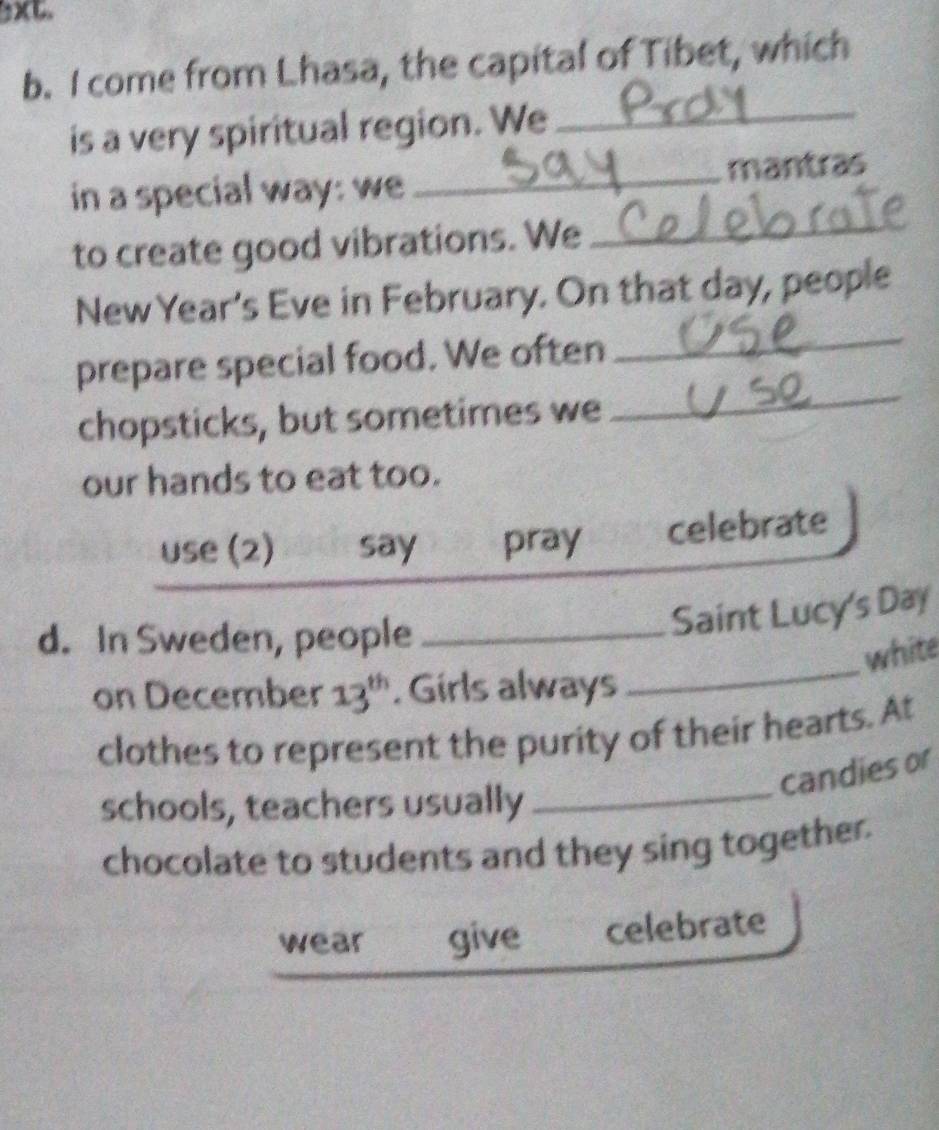 ext.
b. I come from Lhasa, the capital of Tibet, which
is a very spiritual region. We Pray
in a special way: we Say mantras
to create good vibrations. We Celebrate
New Year's Eve in February. On that day, people
prepare special food. We often Use
chopsticks, but sometimes we use
our hands to eat too.
use (2) say pray celebrate
d. In Sweden, people ____________ Saint Lucy's Day
on December 13th. Girls always ____________ white
clothes to represent the purity of their hearts. At
schools, teachers usually ____________ candies or
chocolate to students and they sing together.
wear give celebrate